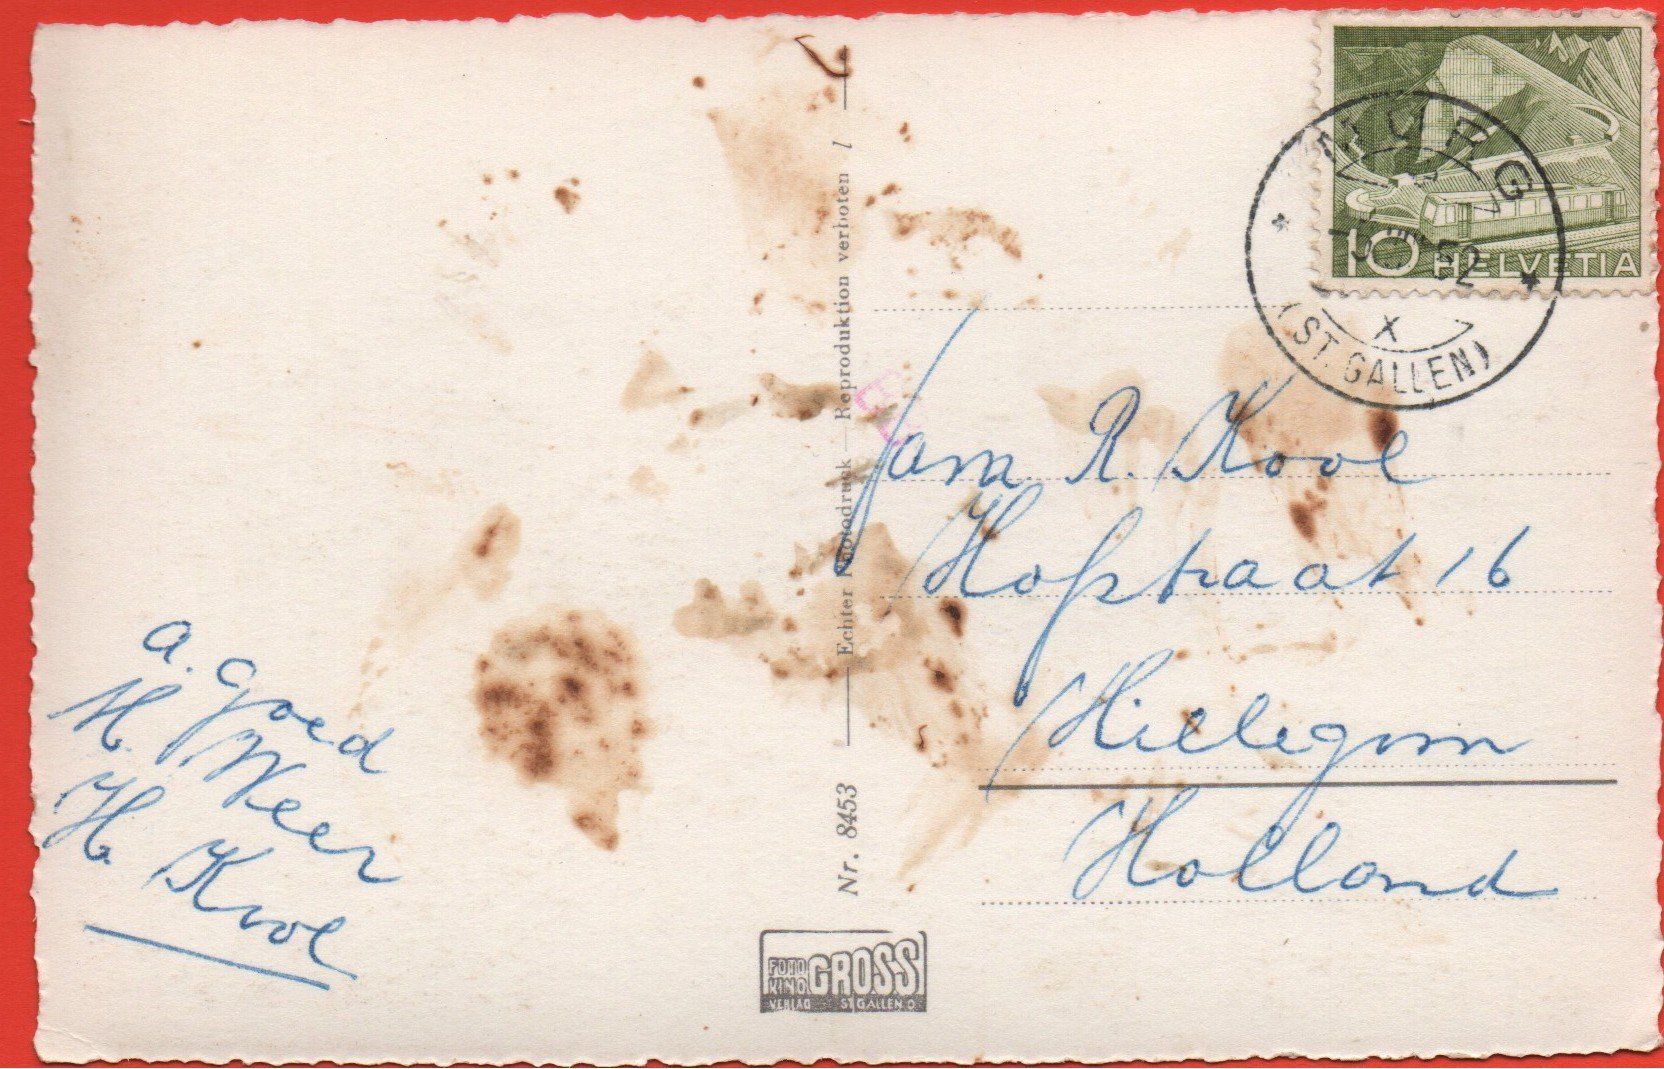 a. goed
H. Weer
H. Kool
Echter Photodruck — Reproduktion verboten
Nr. 8453
FOTO KINO GROSS
VERLAG ST. GALLEN O.
10 HELVETIA
MURG
52
X
(ST. GALLEN)
Fam R. Kool
Hofstraat 16
Hillegom
Holland